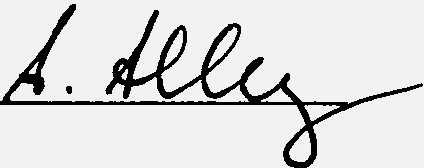 A. Alley